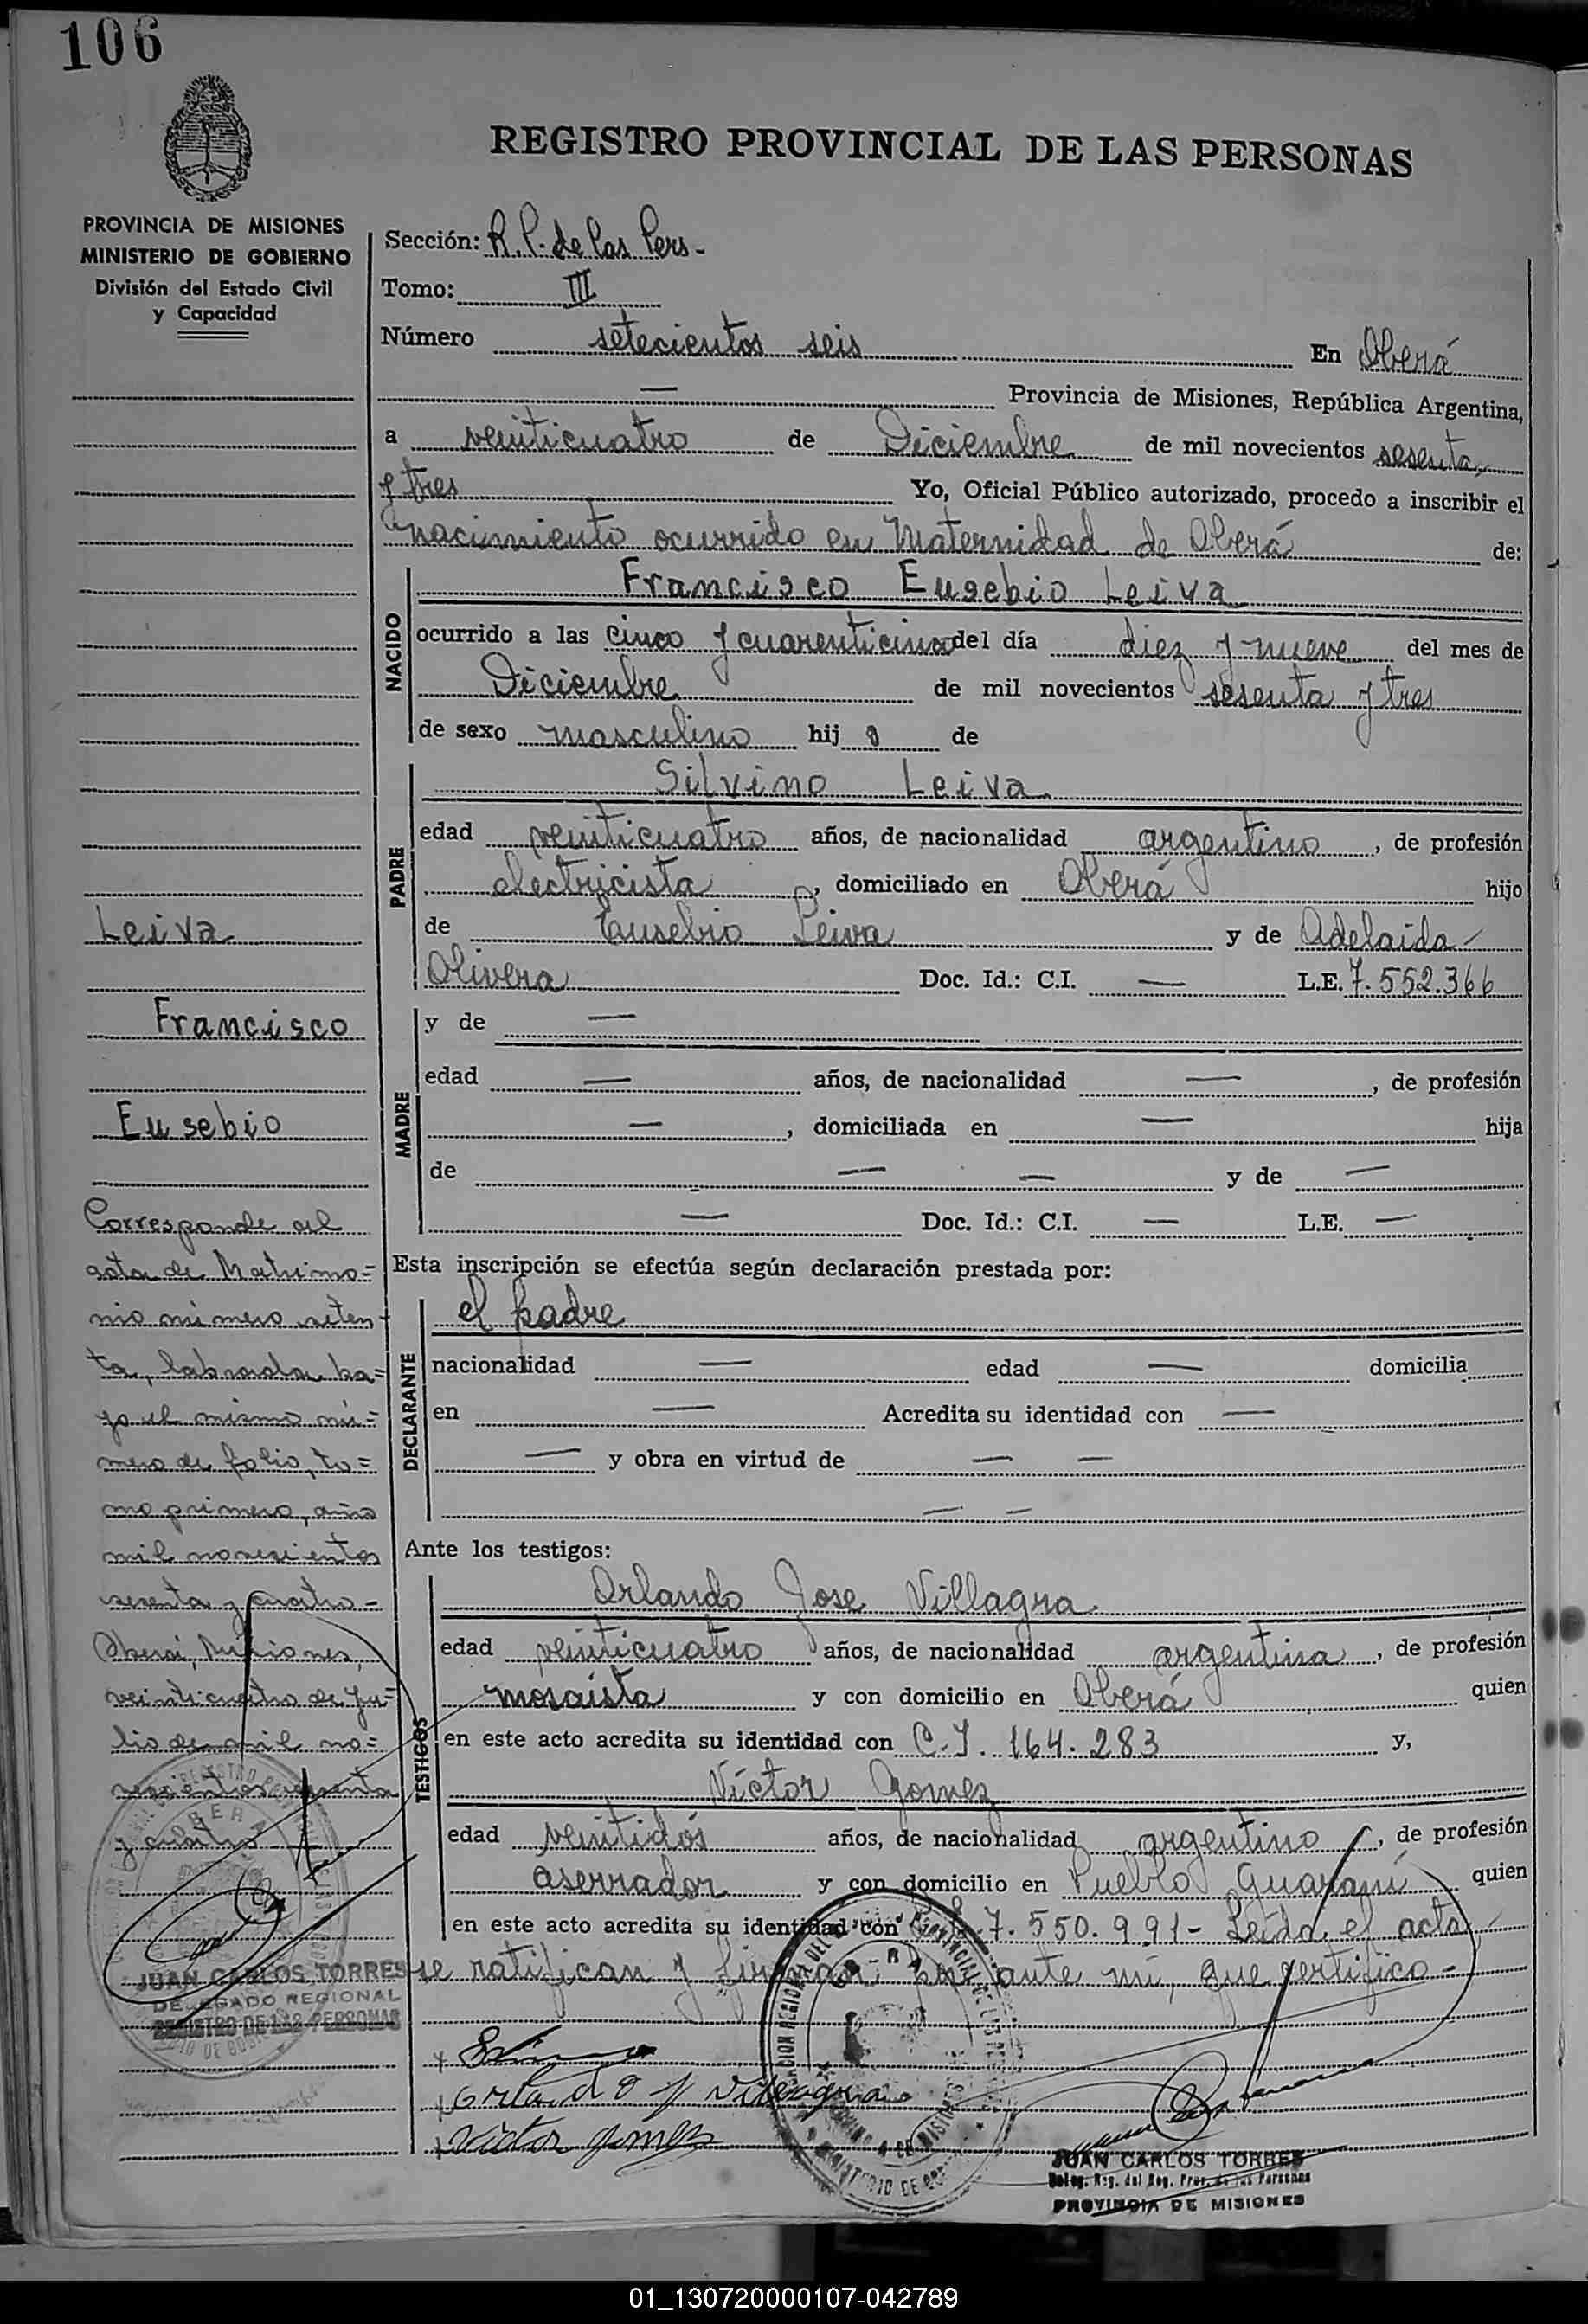 106
REGISTRO PROVINCIAL DE LAS PERSONAS
PROVINCIA DE MISIONES
MINISTERIO DE GOBIERNO
División del Estado Civil
y Capacidad
Sección: R. P. de las Pers-
Tomo: III
Número setecientos seis En Oberá
— Provincia de Misiones, República Argentina,
a veinticuatro de Diciembre de mil novecientos sesenta
y tres Yo, Oficial Público autorizado, procedo a inscribir el
nacimiento ocurrido en Maternidad de Oberá de:
NACIDO
Francisco Eusebio Leiva
ocurrido a las cinco y cuarenticinco del día diez y nueve del mes de
Diciembre de mil novecientos sesenta y tres
de sexo masculino hijo de
PADRE
Silvino Leiva
edad veinticuatro años, de nacionalidad argentino, de profesión
electricista, domiciliado en Oberá hijo
de Eusebio Leiva y de Adelaida
Olivera Doc. Id.: C.I. — L.E. 7.552.366
MADRE
y de —
edad — años, de nacionalidad —, de profesión
—, domiciliada en — hija
de — — y de —
— Doc. Id.: C.I. — L.E. —
Esta inscripción se efectúa según declaración prestada por:
DECLARANTE
el padre
nacionalidad — edad — domicilia
en — Acredita su identidad con —
— y obra en virtud de — —
— —
Ante los testigos:
TESTIGOS
Orlando Jose Villagra
edad veinticuatro años, de nacionalidad argentina, de profesión
mosaista y con domicilio en Oberá quien
en este acto acredita su identidad con C.I. 164.283 y,
Victor Gomez
edad veintidós años, de nacionalidad argentino, de profesión
aserrador y con domicilio en Pueblo Guaraní quien
en este acto acredita su identidad con 7.550.991- Leída el acta
se ratifican y firman por ante mi, que certifico-
Orlando J Villagra
Victor gomez
JUAN CARLOS TORRES
Deleg. Reg. del Reg. Prov. de las Personas
PROVINCIA DE MISIONES
Leiva
Francisco
Eusebio
Corresponde al
acta de Matrimo=
nio número seten-
ta, labrada ba=
jo el mismo nú=
mero de folio, to=
mo primero, año
mil novecientos
sesenta y cuatro-
Oberá, Misiones,
veinticuatro de Ju=
lio de mil no=
vecientos sesenta
y cuatro
JUAN CARLOS TORRES
DELEGADO REGIONAL
REGISTRO DE LAS PERSONAS
01_130720000107-042789